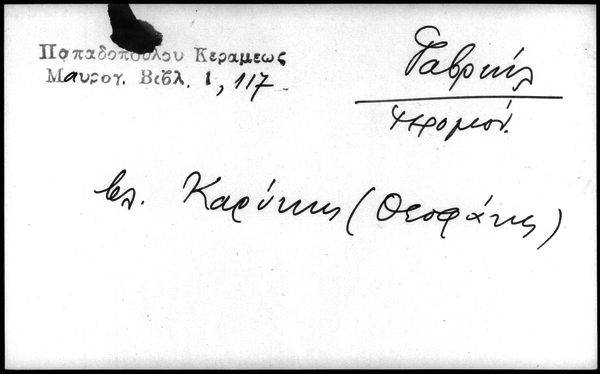 Παπαδοπούλου Κεραμεως
Μαυρογ. Βιβλ. 1, 117
Γαβριήλ
ἱερομόν.
βλ. Καρύκης (Θεοφάνης)